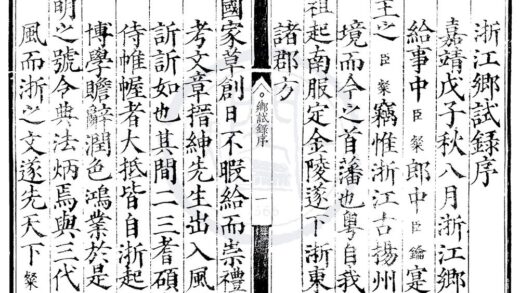 浙江鄉試録序
嘉靖戊子秋八月浙江鄉
給事中臣粲郎中臣鑰寔
主之臣粲竊惟浙江古揚州
境而今之首藩也粵自我
祖起南服定金陵遂下浙東
諸郡方
鄉試録序 一
國家草創日不暇給而崇禮
考文章搢紳先生出入風
訢訢如也其間二三耆碩
侍帷幄者大抵皆自浙起
博學贍辭潤色鴻業於是
明之號令典法炳焉與三代
風而浙之文遂先天下粲